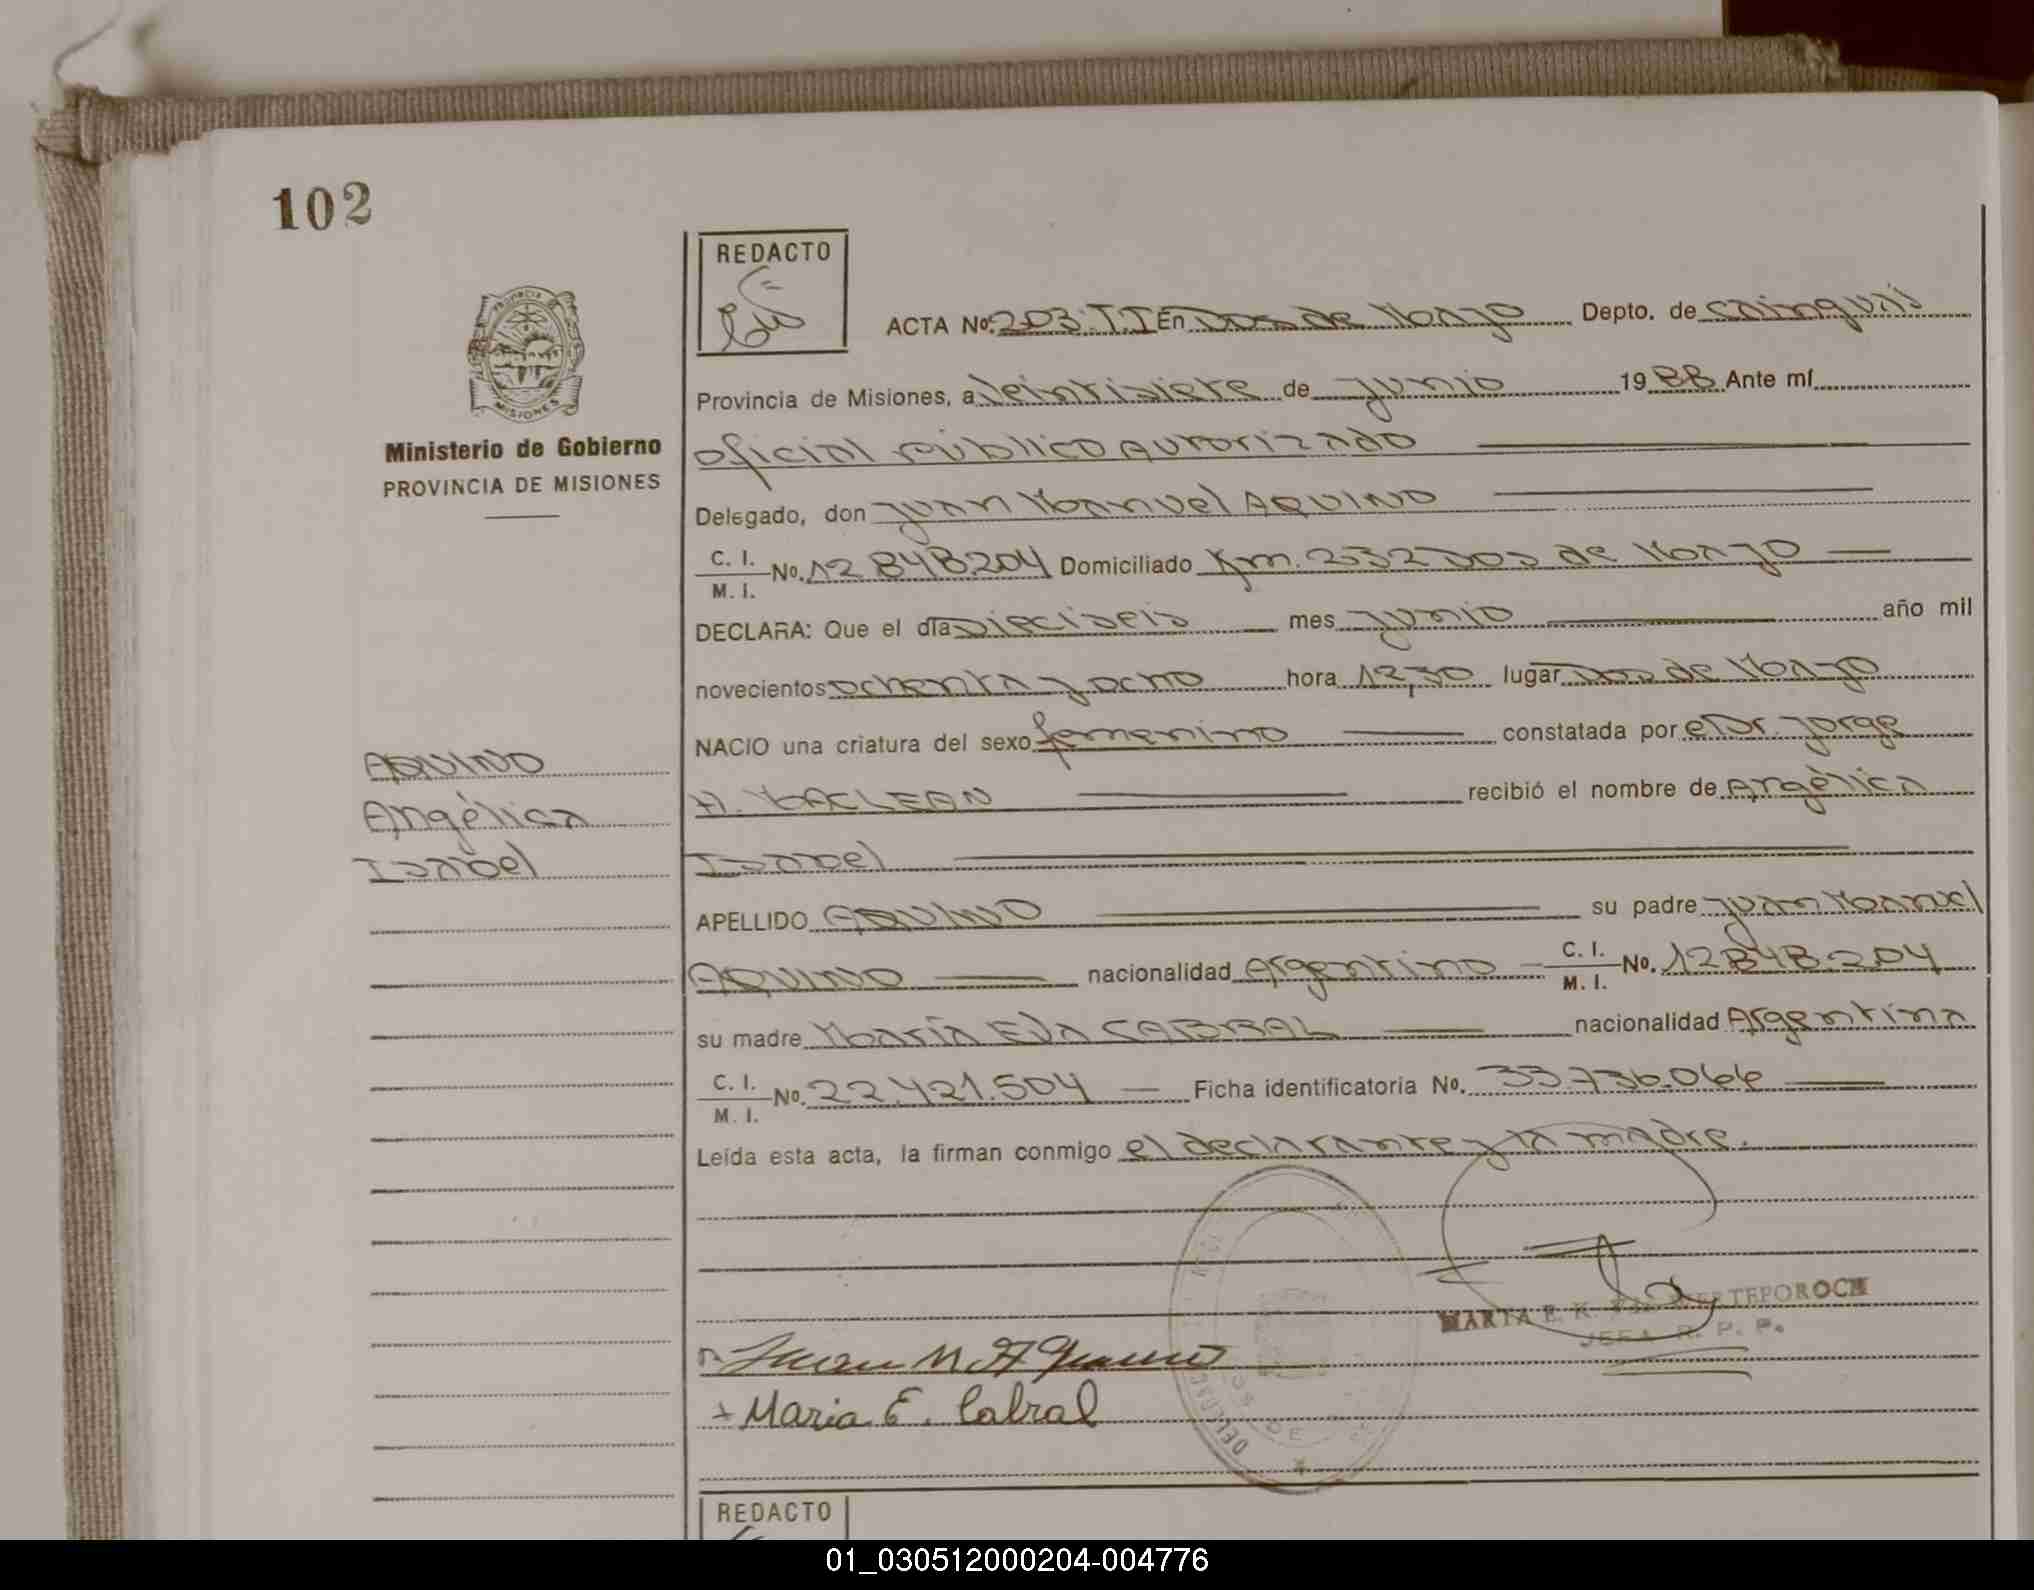 102
REDACTO
ACTA No. 203. T. I En Dos de Mayo Depto. de Cainguás
Provincia de Misiones, a Veintisiete de Junio 1988 Ante mí
Oficial público Autorizado
Ministerio de Gobierno
PROVINCIA DE MISIONES
Delegado, don Juan Manuel AQUINO
C. I. M. I. No. 12 848.204 Domiciliado Km. 232 Dos de Mayo
DECLARA: Que el día Dieciseis mes Junio año mil
novecientos ochenta y ocho hora 12,30 lugar Dos de Mayo
NACIO una criatura del sexo femenino constatada por el Dr. Jorge
AQUINO
Angélica
Isabel
A. MACLEAN recibió el nombre de Angélica
Isabel
APELLIDO AQUINO su padre Juan Manuel
AQUINO nacionalidad Argentino C. I. M. I. No. 12848.204
su madre María Eva CABRAL nacionalidad Argentina
C. I. M. I. No. 22.421.504 Ficha identificatoria No. 33.736.066
Leída esta acta, la firman conmigo el declarante y la madre.
MARTA E. K. WERTEPOROCH
JEFA R. P. P.
Juan M Aquino
Maria E. Cabral
REDACTO
01_030512000204-004776